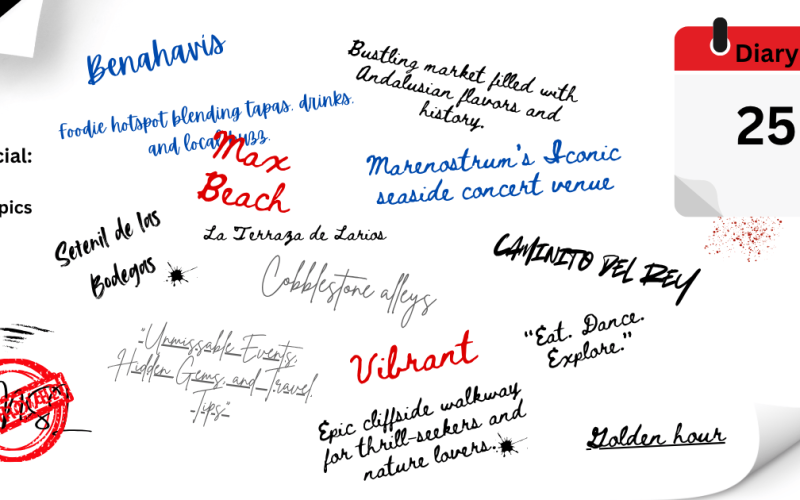 Benahavis
Foodie hotspot blending tapas, drinks,
and local buzz.
Bustling market filled with
Andalusian flavors and
history.
Diary
25
cial:
pics
Max
Beach
Marenostrum's Iconic
seaside concert venue
Setenil de las
Bodegas
La Terraza de Larios
Cobblestone alleys
CAMINITO DEL REY
"Unmissable Events,
Hidden Gems, and Travel
Tips"
Vibrant
"Eat. Dance.
Explore."
Epic cliffside walkway
for thrill-seekers and
nature lovers.
Golden hour